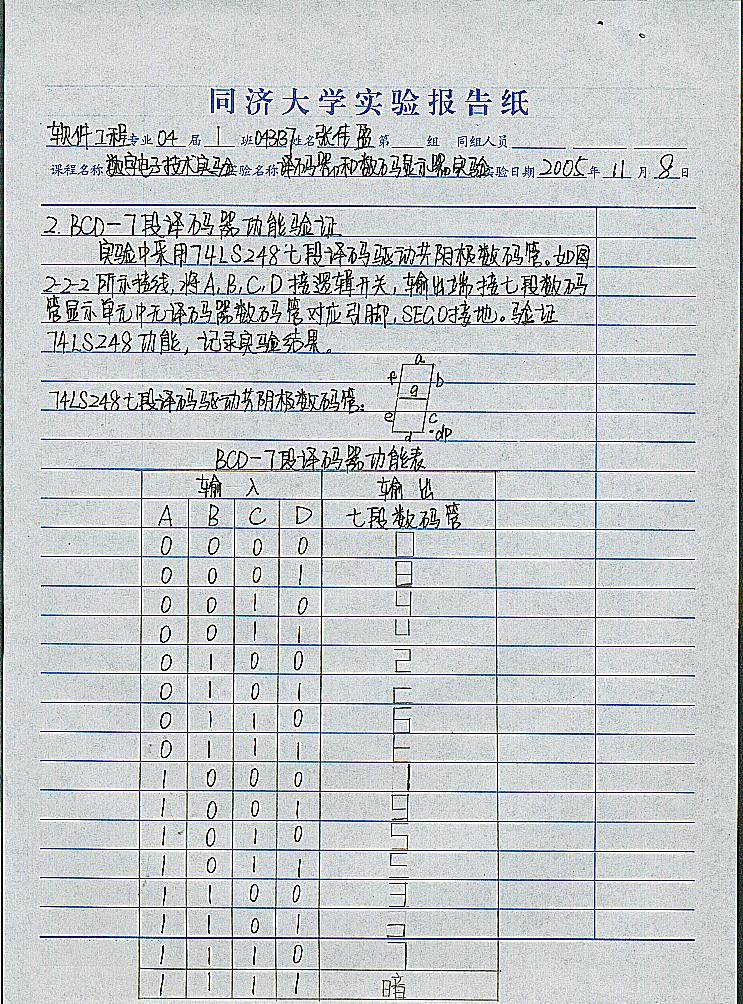 同济大学实验报告纸
软件工程专业 04 届 1 班 043137 姓名 张佳盈 第 组 同组人员
课程名称 数字电子技术实验 实验名称 译码器和数码显示器实验 实验日期 2005 年 11 月 8 日
2. BCD-7段译码器功能验证
实验中采用74LS248七段译码驱动共阴极数码管。如图
2-2-2所示接线,将A,B,C,D接逻辑开关,输出端接七段数码
管显示单元中无译码器数码管对应引脚,SEG0接地。验证
74LS248功能,记录实验结果。
a
f b
g
74LS248七段译码驱动共阴极数码管:
e c
d dp
BCD-7段译码器功能表
输 入 输 出
A B C D 七段数码管
0 0 0 0
0 0 0 1
0 0 1 0
0 0 1 1
0 1 0 0
0 1 0 1
0 1 1 0
0 1 1 1
1 0 0 0
1 0 0 1
1 0 1 0
1 0 1 1
1 1 0 0
1 1 0 1
1 1 1 0
1 1 1 1 暗